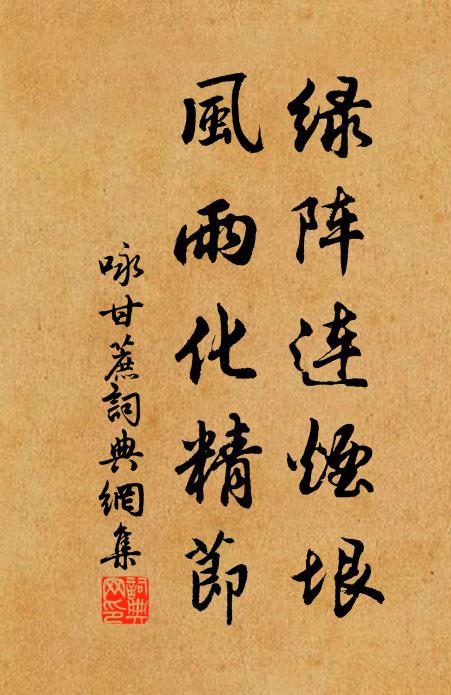 绿阵连烟垠
風雨化精節
咏甘蔗詞典網集
詞典网印